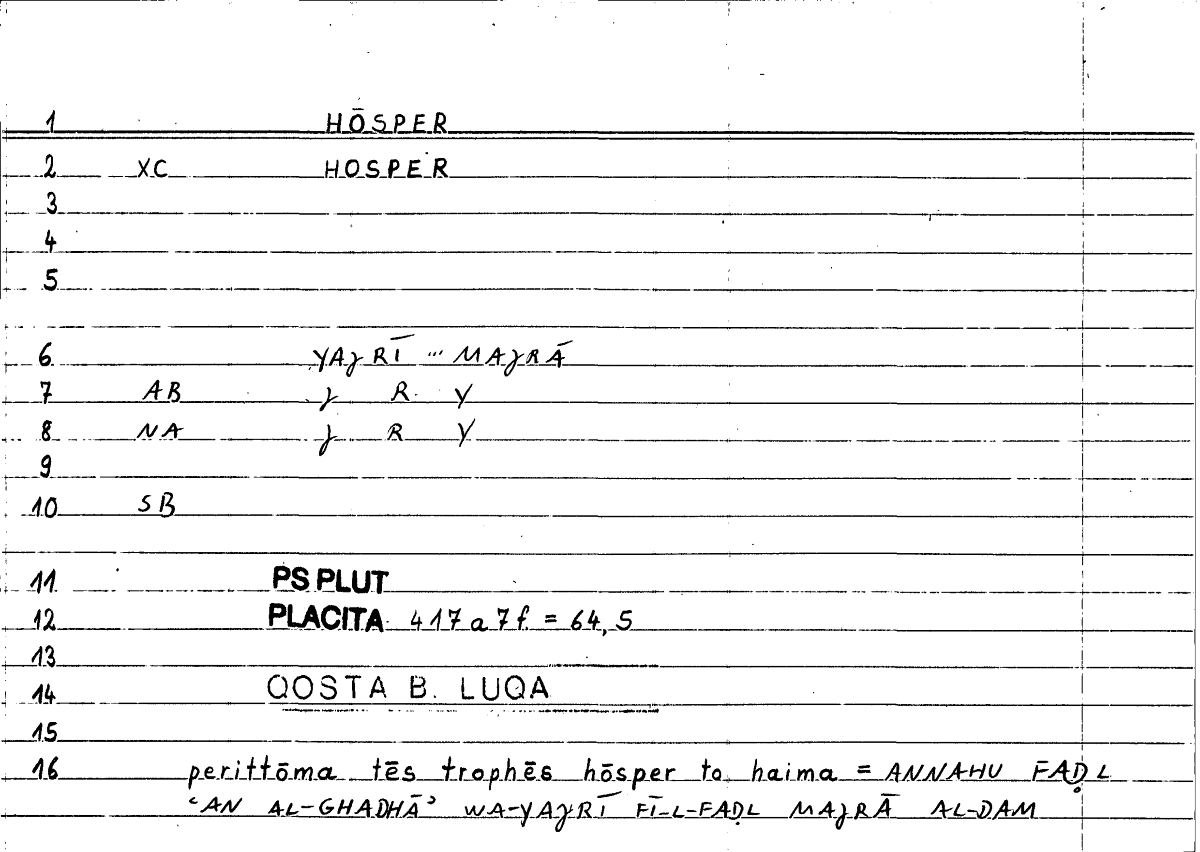 1 HŌSPER
2 XC HOSPER
3
4
5
6 YAJRĪ ... MAJRĀ
7 AB J R Y
8 NA J R Y
9
10 SB
11 PS PLUT
12 PLACITA 417a7f. = 64,5
13
14 QOSTA B. LUQA
15
16 perittōma tēs trophēs hōsper to haima = ANNAHU FAḌL
ʿAN AL-GHADHĀʾ WA-YAJRĪ FĪ-L-FAḌL MAJRĀ AL-DAM